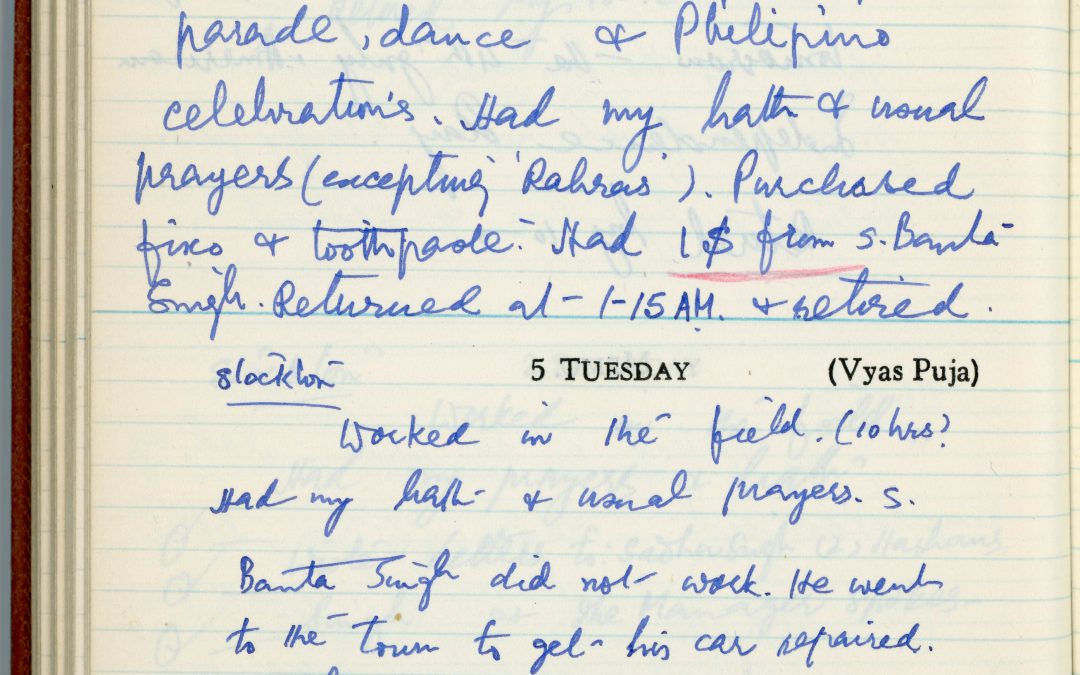 parade, dance & Philipino
celebration's. Had my bath & usual
prayers (excepting 'Rahras'). Purchased
fixo & toothpaste. Had 1$ from S. Banta
Singh. Returned at 1-15 AM. & retired.
Stockton 5 TUESDAY (Vyas Puja)
Worked in the field. (10 hrs)
Had my bath & usual prayers. S.
Banta Singh did not work. He went
to the town to get his car repaired.